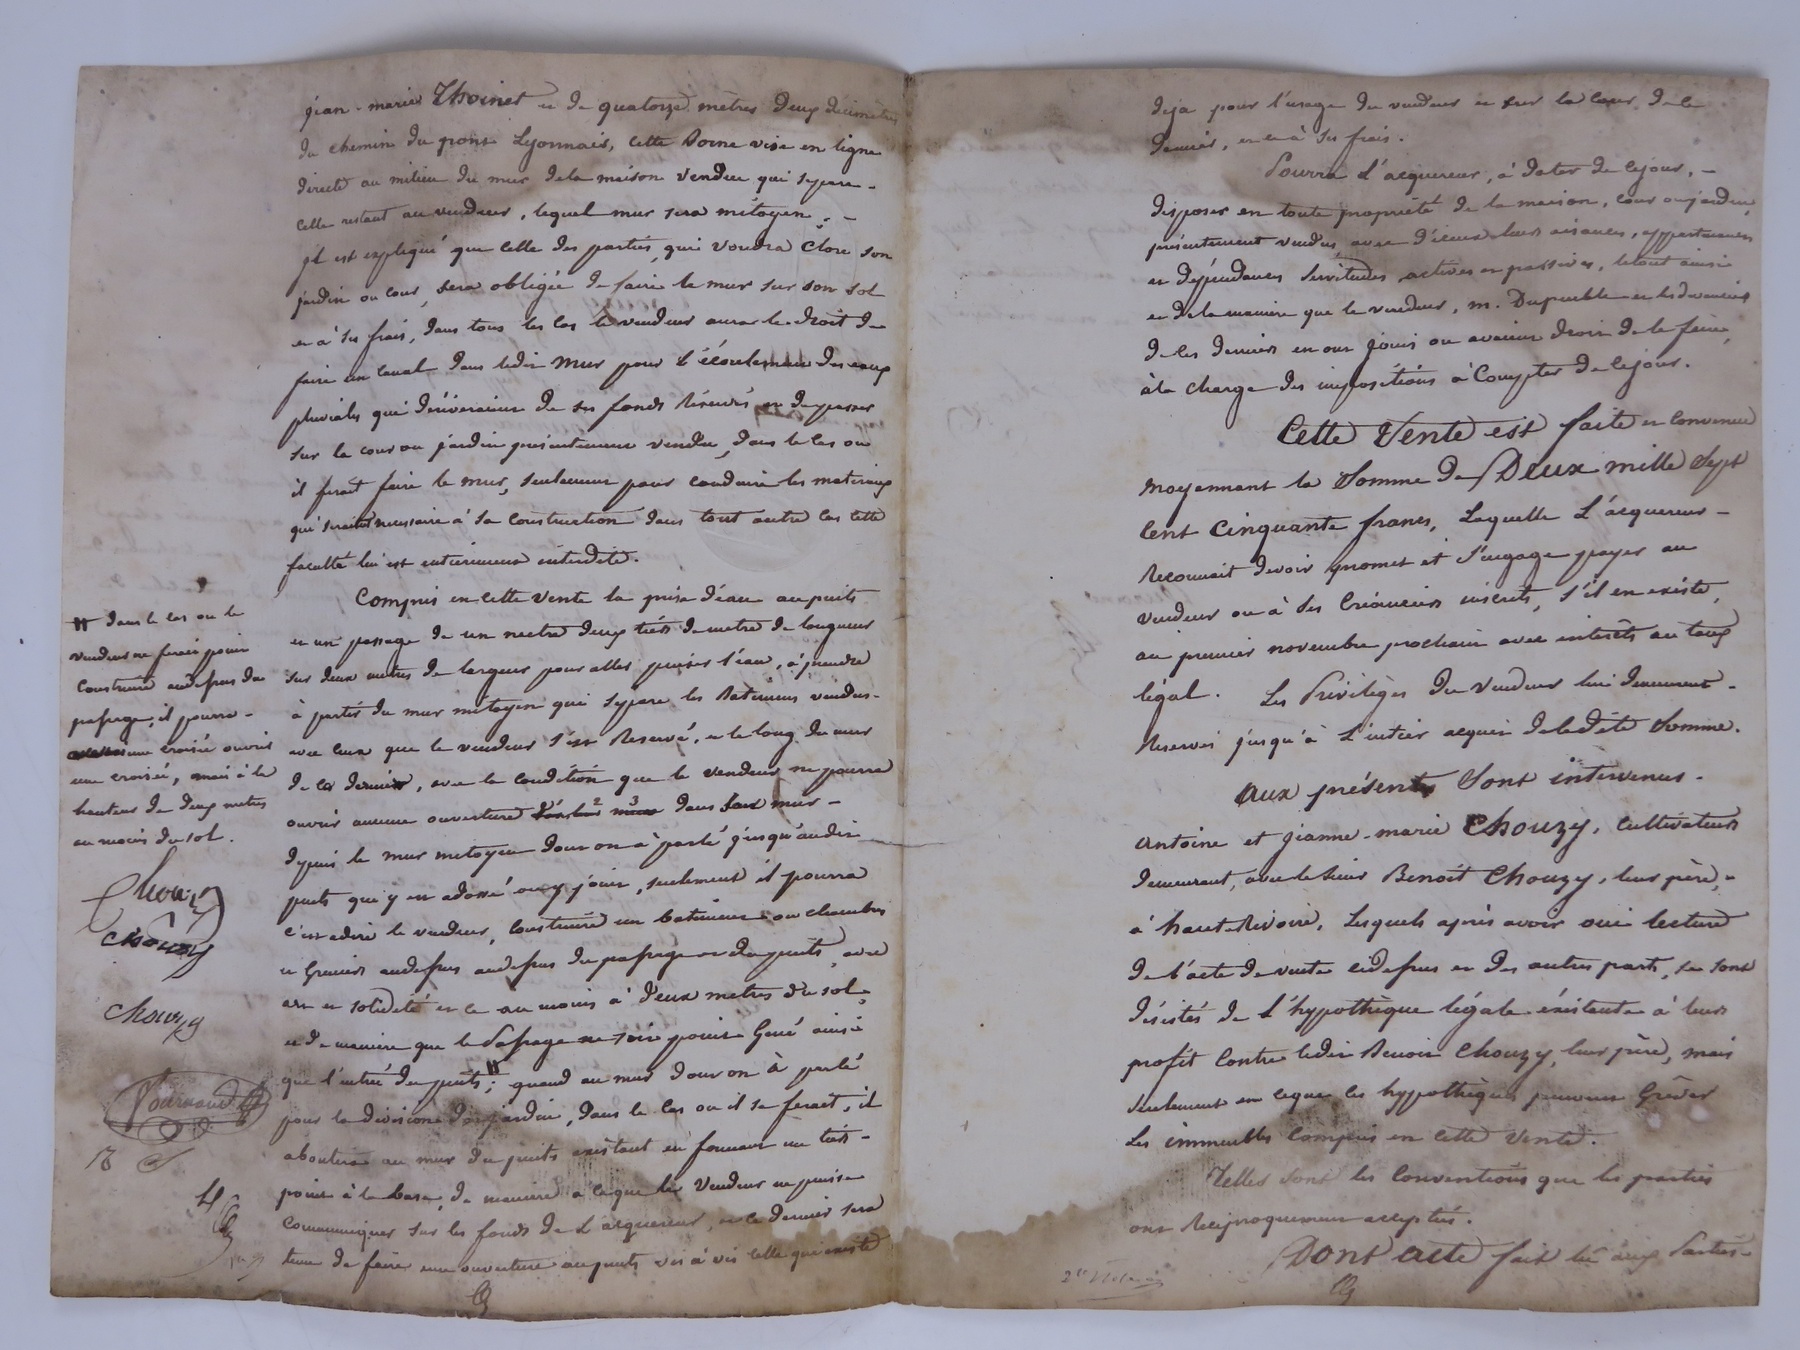 jean-marie Thoinet et de quatorze mètres deux décimètres
du chemin du pont Lyonnais, cette Borne vise en ligne
directe au milieu du mur dela maison vendue qui sépare
celle restant au vendeur, lequel mur sera mitoyen.
il est expliqué que celle des parties, qui voudra Clore son
jardin ou cour, sera obligée de faire le mur sur son sol
et à ses frais, dans tous les cas le vendeur aura le droit de
faire un canal dans ledit mur pour l'écoulement des eaux
pluviales qui dériveraient de ses fonds Réservés en de passer
sur la cour ou jardin présentement vendu, dans le cas ou
il ferait faire le mur, seulement pour conduire les matériaux
qui seraient nécessaire à sa construction dans tout autre cas cette
faculté lui est entièrement interdite.
Compris en cette vente la prise d'eau au puits
et un passage de un mètre deux tiers de mètre de longueur
sur deux mètres de largeur pour aller puiser l'eau, à prendre
à partir du mur mitoyen qui sépare les Batimens vendus
avec ceux que le vendeur s'est Réservé, et le long du mur
de ces derniers, avec la condition que le vendeur ne pourra
ouvrir aucune ouverture dans son mur
depuis le mur mitoyen dont on à parlé jusqu'audit
puits qui y est adossé ou y joint, seulement il pourra
c'est adire le vendeur, construire un batiment ou chambre
et Greniers audessus audessus du passage et du puits, avec
art et solidité et ce au moins à deux mètres du sol,
et de manière que le Passage ne soit point Gené ainsi
que l'entrée du puits; # quand au mur dont on à parlé
pour la division du jardin, dans le cas ou il se ferait, il
aboutira au mur du puits existant en formant un tiers
point à la base, de manière à ceque le Vendeur ne puisse
communiquer sur les fonds de L'acquereur, et ce dernier sera
tenu de faire une ouverture au puits vis à vis celle qui existe
# dans le cas ou le
vendeur ne ferait point
construire audessus du
passage, il pourra
une croisée ouvrir
une croisée, mais à la
hauteur de deux mètres
au moins du sol.
Chouzy
Chouzy
Chouzy
déja pour l'usage du vendeur et sur la cour de ce
dernier, et ce à ses frais.
Pourra L'acquereur, à dater de cejour,
disposer en toute propriété de la maison, cour ou jardin,
présentement vendus avec d'iceux leurs aisances, appartenances
et dépendances Servitudes actives et passives, letout ainsi
et de la manière que le vendeur, m. Dupeuble et les devanciers
de ces derniers en ont joui ou avaient droit de le faire,
à la charge des impositions à Compter de cejour.
Cette Vente est faite et convenue
moyennant la Somme de Deux mille Sept
Cent Cinquante francs, Laquelle L'acquereur
Reconnait devoir promet et s'engage payer au
vendeur ou à ses Créanciers inscrits, s'il en existe,
au premier novembre prochain avec intérêts au taux
légal. Les Privilèges du Vendeur lui demeurent
Réservés jusqu'à L'entier acquit de ladite Somme.
Aux présentes Sont intervenus
Antoine et Jeanne-marie Chouzy, Cultivateurs
demeurant, avec le Sieur Benoit Chouzy, leur père,
à haute-Rivoire, Lesquels après avoir oui lecture
de l'acte de vente cidessus et des autres parts, se sont
désistés de L'hypothèque légale existante à leur
profit Contre ledit Benoit Chouzy, leur père, mais
seulement en ceque ces hypothèques peuvent Gréver
Les immeubles Compris en cette Vente.
Telles sont les Conventions que les parties
ont Réciproquement acceptées.
Dont acte fait lu aux Parties